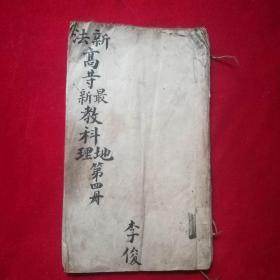 新法
高等
最新
教科
地理
第四册
李俊